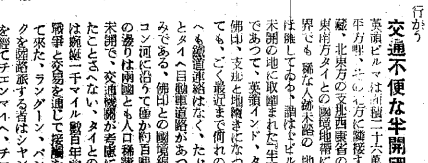 行かう
交通不便な半開國
英領ビルマは面積二十六
平方哩、その北方に隣接す
蔵、北東方の支那西康省
東南方タイとの國境地帯に
界でも稀な人跡未踏の地
未開の地に取圍まれた
であつて、英領インド、タ
佛印、支那と地續きになつ
ても、ごく最近まで何れの
へも鐵道連絡はなく、たゞ
とタイへ自動車道路があつ
みである。佛印との國境線
コン河に沿うて僅か約百哩
の邊りは兩國とも人口稀薄
未開で、交通機關が考慮
たことさへない。タイとの
は蜿蜒一千マイル數百年
戰爭と交易を通じて接觸
て來た。ラングーン、バ
クを陸路旅する者はシヤ
を經てチエンマイへ、チ